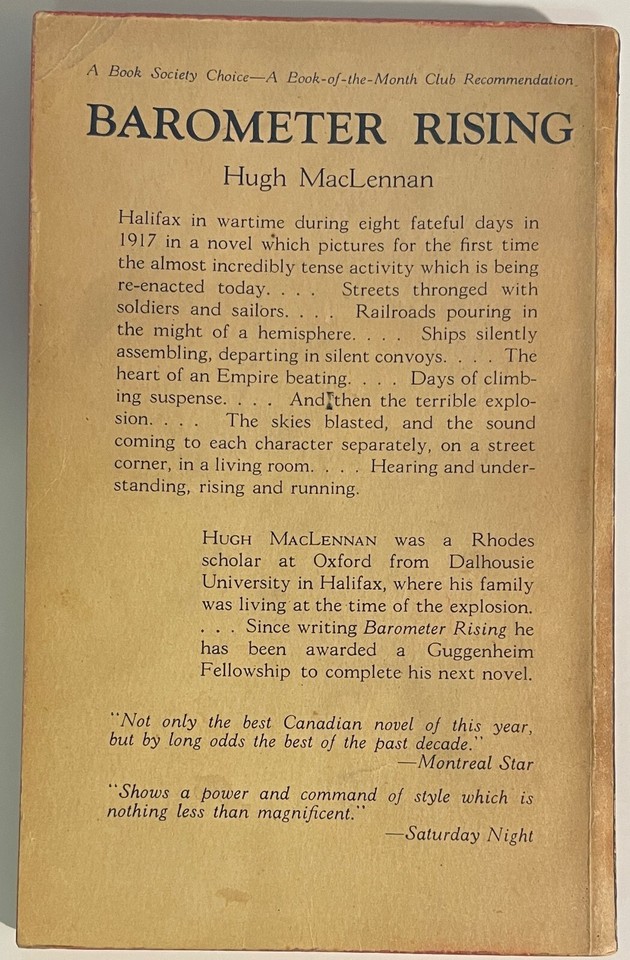 A Book Society Choice—A Book-of-the-Month Club Recommendation
BAROMETER RISING
Hugh MacLennan
Halifax in wartime during eight fateful days in
1917 in a novel which pictures for the first time
the almost incredibly tense activity which is being
re-enacted today. . . . Streets thronged with
soldiers and sailors. . . . Railroads pouring in
the might of a hemisphere. . . . Ships silently
assembling, departing in silent convoys. . . . The
heart of an Empire beating. . . . Days of climb-
ing suspense. . . . And then the terrible explo-
sion. . . . The skies blasted, and the sound
coming to each character separately, on a street
corner, in a living room. . . . Hearing and under-
standing, rising and running.
HUGH MACLENNAN was a Rhodes
scholar at Oxford from Dalhousie
University in Halifax, where his family
was living at the time of the explosion.
. . . Since writing Barometer Rising he
has been awarded a Guggenheim
Fellowship to complete his next novel.
"Not only the best Canadian novel of this year,
but by long odds the best of the past decade."
—Montreal Star
"Shows a power and command of style which is
nothing less than magnificent."
—Saturday Night